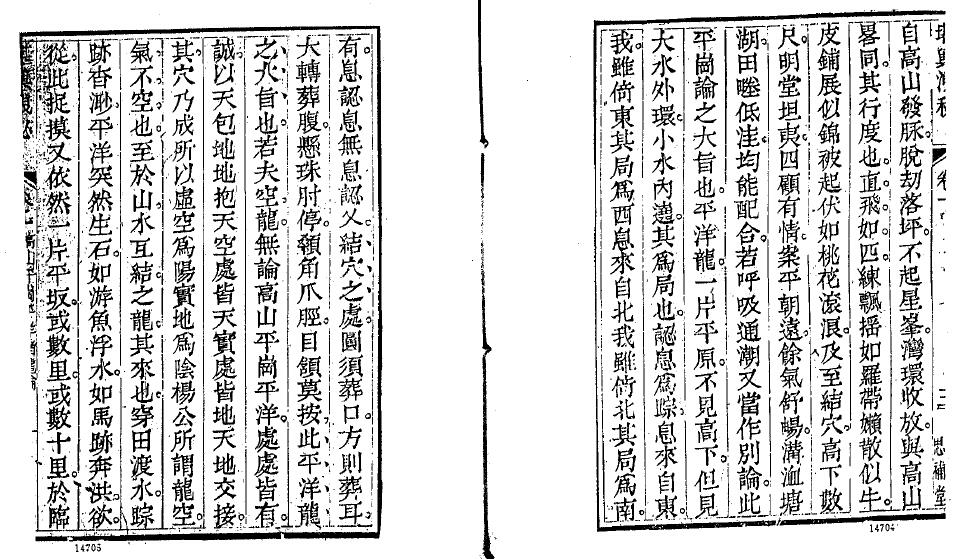 自高山發脉脫刼落坪不起星峯灣環收放與高山
畧同其行度也直飛如匹練飄揺如羅帶嬾散似牛
皮鋪展似錦被起伏如桃花滾浪及至結穴高下數
尺明堂坦夷四顧有情案平朝遠餘氣舒暢溝洫塘
湖田塍低洼均能配合若呼吸通潮又當作別論此
平崗論之大旨也平洋龍一片平原不見高下但見
大水外環小水內遶其為局也認息為踪息來自東
我雖倚東其局為西息來自北我雖倚北其局為南
思補堂
14704
有息認息無息認父結穴之處圓須葬口方則葬耳
大轉葬腹懸珠肘停領角爪脛目頷莫按此平洋龍
之大旨也若夫空龍無論高山平崗平洋處處皆有
誠以天包地地抱天空處皆天實處皆地天地交接
其穴乃成所以虛空為陽實地為陰楊公所謂龍空
氣不空也至於山水互結之龍其來也穿田渡水踪
跡杳渺平洋突然生石如游魚浮水如馬跡奔洪欲
從此捉摸又依然一片平坂或數里或數十里於臨
14705